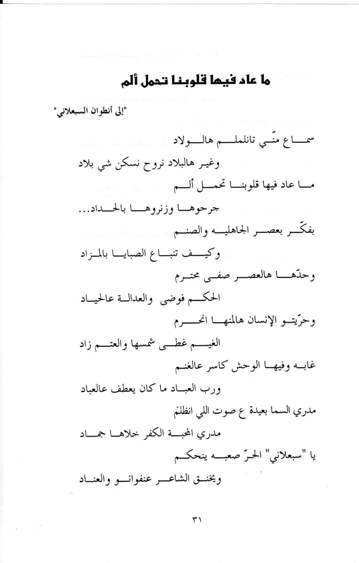 ما عاد فيها قلوبنا تحمل ألم
"إلى أنطوان السبعلاني"
سمـاع منّـي تانلملـم هالـولاد
وغير هالبلاد نروح نسكن شي بلاد
مـا عاد فيها قلوبنـا تحمـل ألـم
جرحوهـا وزنروهـا بالحـداد...
بفكّـر بعصـر الجاهليـه والصنـم
وكيـف تنبـاع الصبايـا بالمـزاد
وحدّهـا هالعصـر صفـى محترم
الحكـم فوضى والعدالـة عالحيـاد
وحرّيتـو الإنسان هالمنهـا انحـرم
الغيـم غطـى شمسها والعتـم زاد
غابـه وفيهـا الوحش كاسر عالغنـم
ورب العبـاد ما كان يعطف عالعباد
مدري السما بعيدة ع صوت اللي انظلم
مدري المحبـة الكفر خلاهـا جمـاد
يا "سبعلاني" الحرّ صعبـه ينحكـم
ويخنـق الشاعـر عنفوانـو والعنـاد
٣١